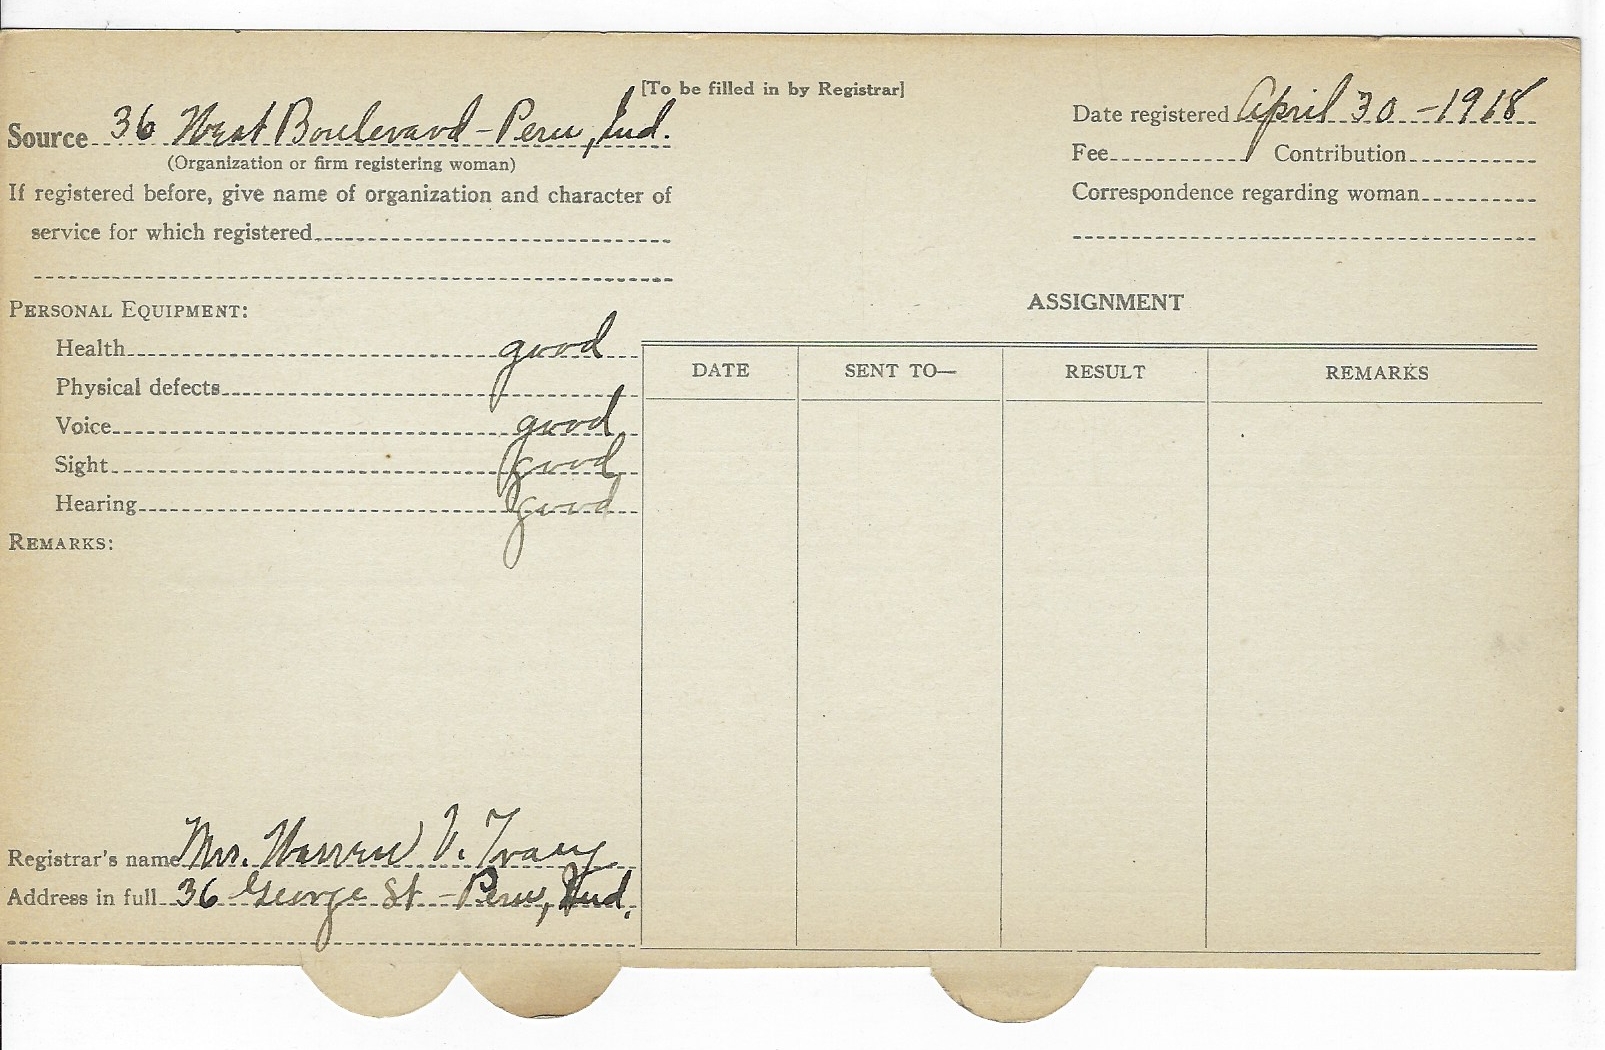 [To be filled in by Registrar]
Source 36 West Boulevard - Peru, Ind.
(Organization or firm registering woman)
If registered before, give name of organization and character of
service for which registered
Date registered April 30 - 1918
Fee Contribution
Correspondence regarding woman
PERSONAL EQUIPMENT:
Health good
Physical defects
Voice good
Sight good
Hearing good
REMARKS:
ASSIGNMENT
DATE SENT TO— RESULT REMARKS
Registrar's name Mrs. Warren V. Tracy
Address in full 36 George St - Peru, Ind.